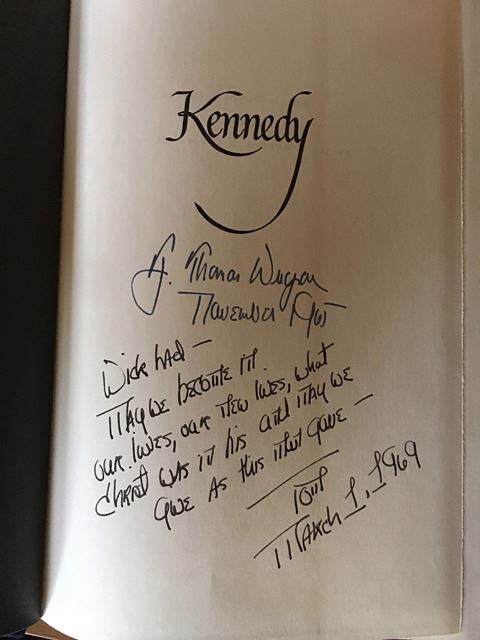 Kennedy
Thomas
November 1965
Dick lad —
May we become in
our lives, our new lives, what
Christ was in his and may we
give as this man gave —
Tom
March 1, 1969